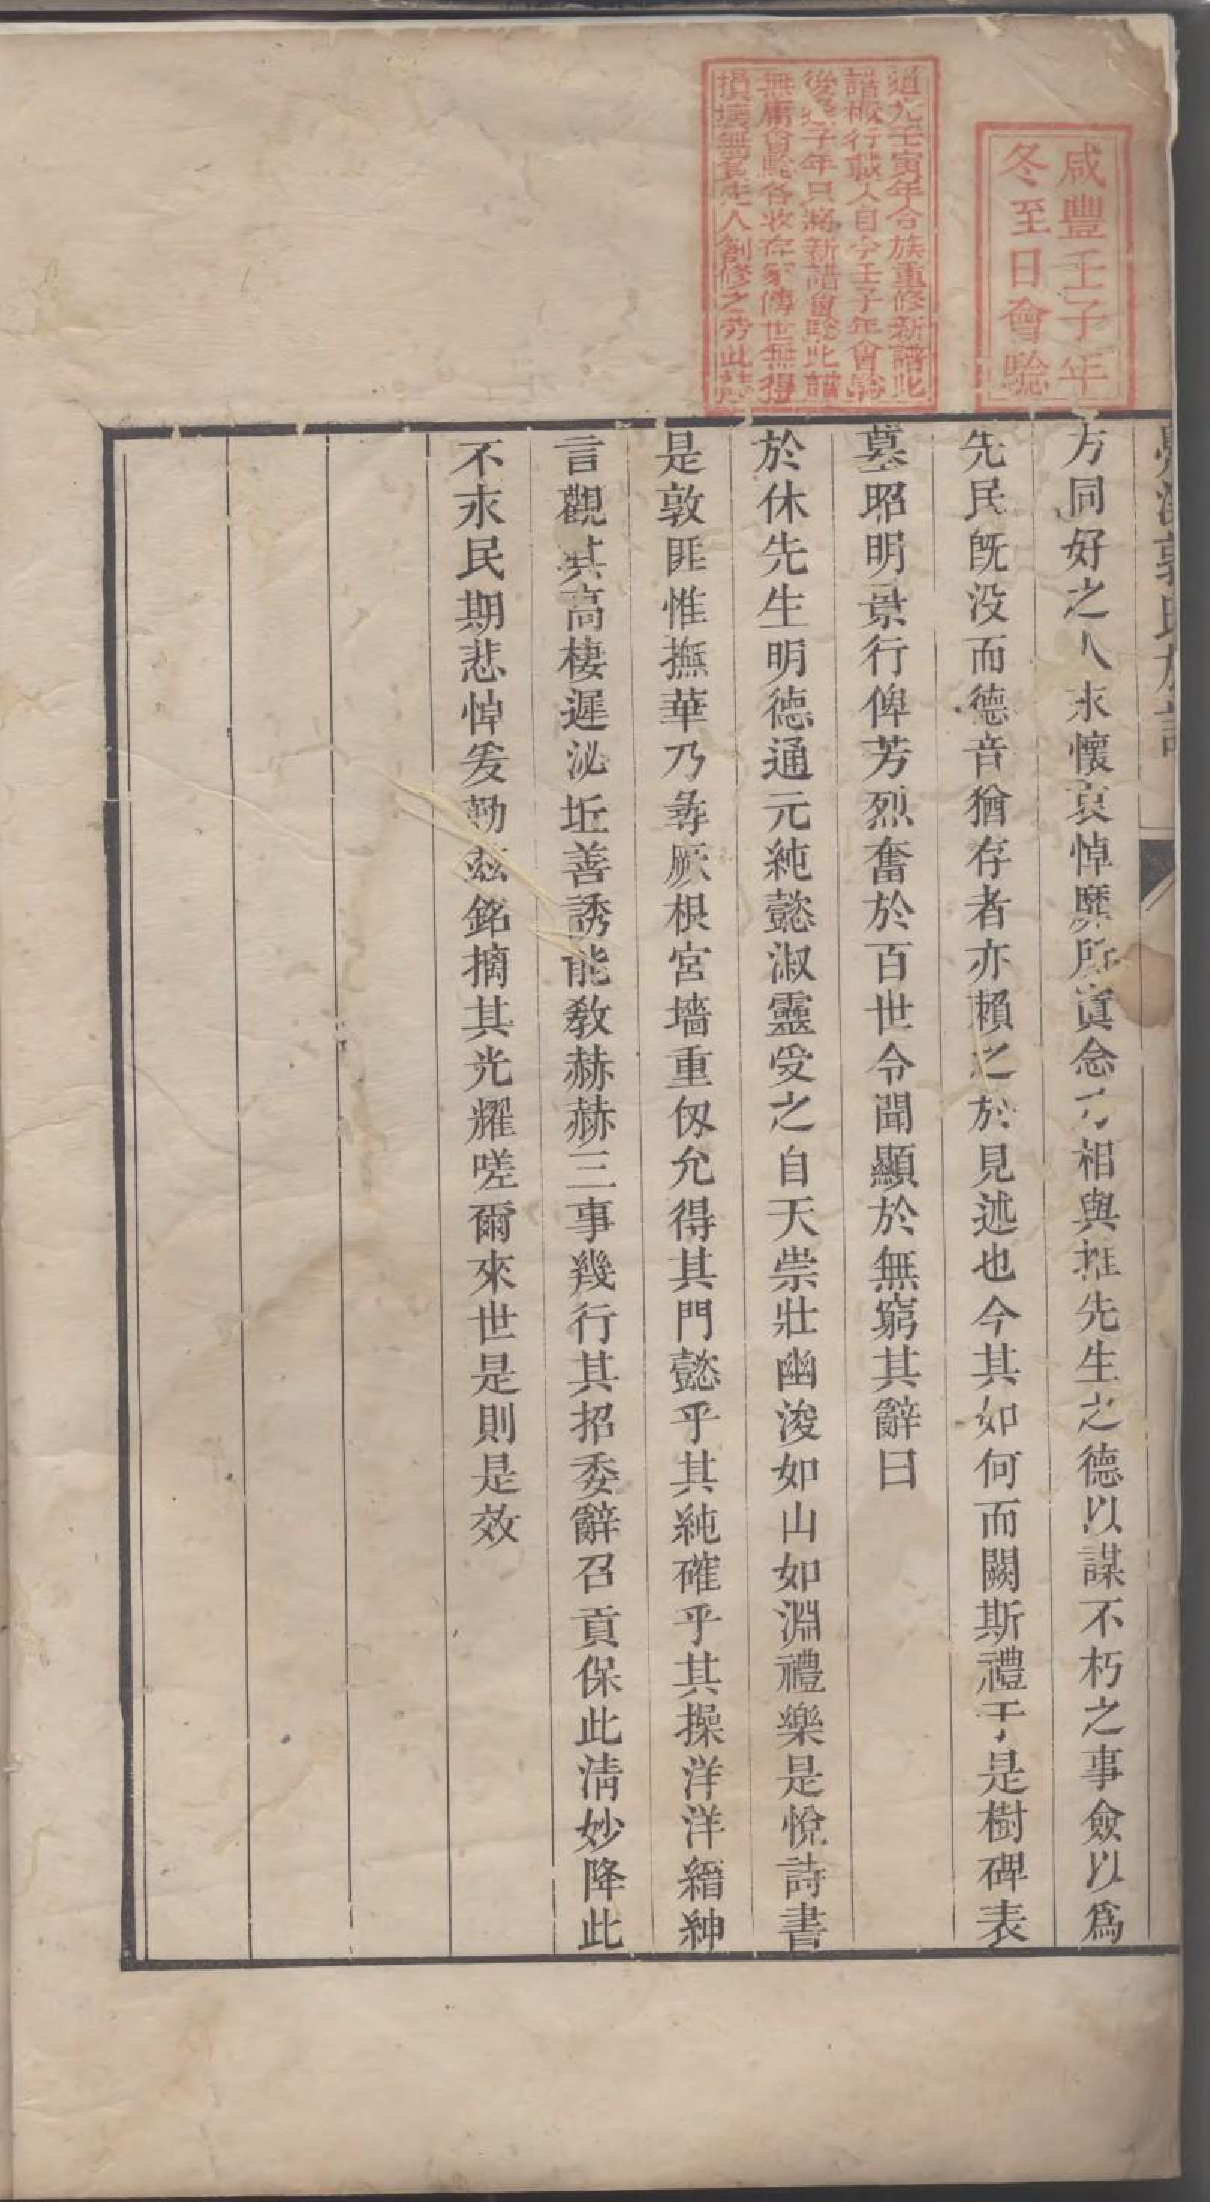 咸豐壬子年
冬至日會驗
道光壬寅年合族重修新譜此
譜板行載入自今壬子年會驗
後子年只將新譜會驗此譜
無庸會驗各收存家傳世無得
損壞無負先人創修之勞此誌
郭氏族譜
方同好之人永懷哀悼靡所寘念乃相與推先生之德以謀不朽之事僉以爲
先民旣没而德音猶存者亦賴之於見述也今其如何而闕斯禮于是樹碑表
墓昭明景行俾芳烈奮於百世令聞顯於無窮其辭曰
於休先生明德通元純懿淑靈受之自天崇壯幽浚如山如淵禮樂是悅詩書
是敦匪惟摭華乃尋厥根宮墻重仭允得其門懿乎其純確乎其操洋洋縉紳
言觀其高棲遲泌坵善誘能敎赫赫三事幾行其招委辭召貢保此淸妙降此
不永民期悲悼爰勒兹銘摛其光耀嗟爾來世是則是效